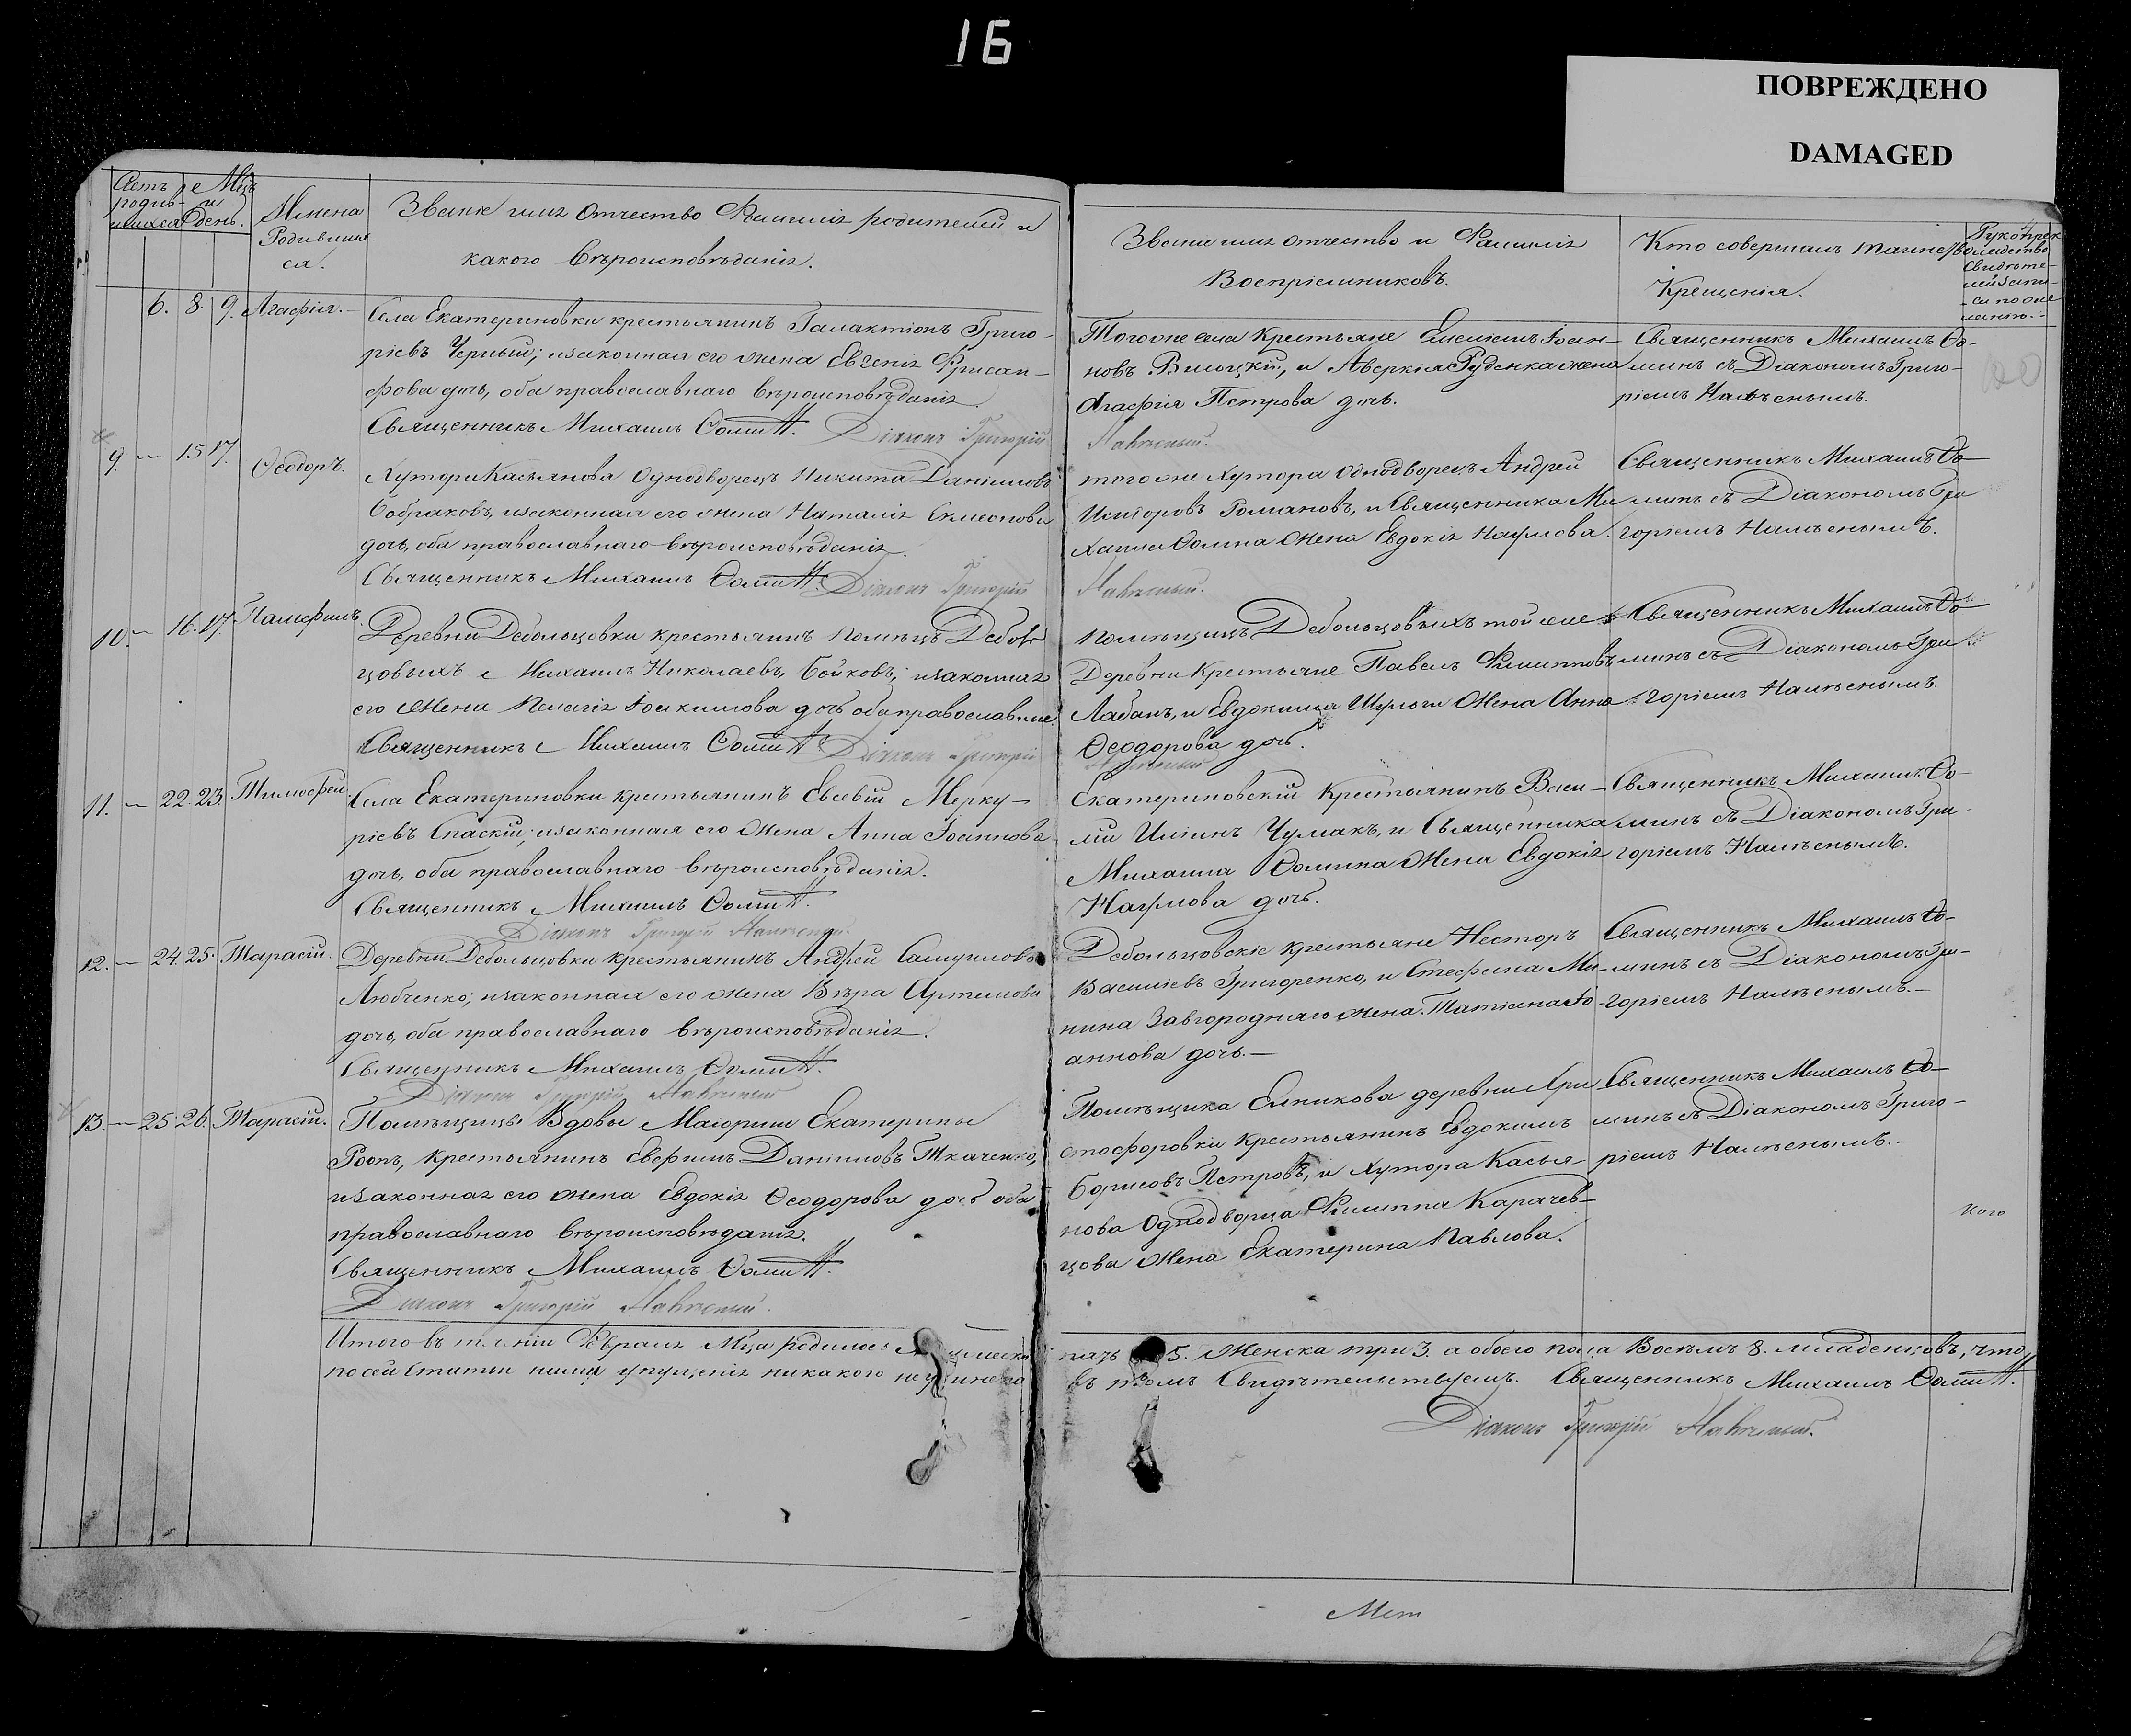 16
ПОВРЕЖДЕНО
DAMAGED
Счетъ родив-шихся
Мѣць и день.
Имена Родивших-ся.
Званіе имя Отчество Фамилія родителей и
какого Вѣроисповѣданія.
Званіе имя отчество и Фамилія
Воспріемниковъ.
Кто совершалъ таинство
Крещенія.
6. 8. 9. Агафія.
Села Екатериновки крестьянинъ Галактіонъ Григо-
ріевъ Черный; изаконная его жена Евгенія
фова дочь, оба православнаго вѣроисповѣданія.
Священникъ Михаилъ Ѳоминъ. Діаконъ Григорій
Тогоже села Крестьяне Іоан-
новъ Висоцкій, и Аверкія Руденка жена
Агафія Петрова дочь.
Священникъ Михаилъ Ѳо-
минъ съ Діакономъ Григо-
ріемъ
9. 15 17. Ѳеодоръ.
Хутора Касьянова Однодворецъ Никита Даніиловъ
Бобраковъ, изаконная его жена Наталія
дочь, оба православнаго вѣроисповѣданія.
Священникъ Михаилъ Ѳоминъ. Діаконъ Григорій
тогоже Хутора Однодворецъ Андрей
Романовъ, и Священника Ми
хаила Ѳомина Жена Евдокія Наумова.
Священникъ Михаилъ Ѳо
минъ съ Діакономъ Гри
горіемъ
10. 16. 17. Памфилъ.
Деревни Дебольцовки крестьянинъ помѣщ. Деболь
цовыхъ Михаилъ Николаевъ Бойковъ; изаконная
его Жена Пелагія Іоакимова дочь оба православные
Священникъ Михаилъ Ѳоминъ. Діаконъ Григорій
помѣщицъ Дебольцовыхъ той же
Деревни Крестьяне Павелъ Филипповъ
Лабанъ, и Евдокима Шульги Жена Анна
Ѳеодорова дочь.
Священникъ Михаилъ Ѳо
минъ съ Діакономъ Гри
горіемъ
11. 22. 23. Тимоѳей.
Села Екатериновки крестьянинъ Евсевій Мерку-
ріевъ Спаскій; изаконная его Жена Анна Іоаннова
дочь, оба православнаго вѣроисповѣданія.
Священникъ Михаилъ Ѳоминъ.
Діаконъ Григорій
Екатериновскій Крестьянинъ Васи-
лій Иліинъ Чумакъ, и Священника
Михаила Ѳомина Жена Евдокія
Наумова дочь.
Священникъ Михаилъ Ѳо-
минъ съ Діакономъ Гри-
горіемъ
12. 24. 25. Тарасій.
Деревни Дебольцовки крестьянинъ Андрей Самуиловъ
Любченко; изаконная его жена Вѣра Артемова
дочь, оба православнаго вѣроисповѣданія.
Священникъ Михаилъ Ѳоминъ.
Діаконъ Григорій
Дебольцовскіе крестьяне Несторъ
Василіевъ Григоренко, и Стефана Ми-
нина Завгородняго жена Татіана Іо-
аннова дочь.
Священникъ Михаилъ Ѳо-
минъ съ Діакономъ Гри-
горіемъ
13. 25. 26. Тарасій.
Помѣщицы Вдовы Маіорши Екатерины
крестьянинъ Ефимъ Даніиловъ Ткаченко,
изаконная его жена Евдокія Ѳеодорова дочь оба
православнаго вѣроисповѣданія.
Священникъ Михаилъ Ѳоминъ.
Діаконъ Григорій
Помѣщика деревни Хри
стофоровки крестьянинъ Евдокимъ
Борисовъ Петровъ, и Хутора Касья-
нова Однодворца Филиппа Карачев-
цова Жена Екатерина Павлова.
Священникъ Михаилъ Ѳо
минъ съ Діакономъ Григо-
ріемъ
кого
Итого въ теченіи Февраля Мѣца родилось
по сей Статьи нами упущенія никакого
5. Женска три 3. а обоего пола Восѣмъ 8. младенцовъ, что
въ томъ Свидѣтельствуемъ. Священникъ Михаилъ Ѳоминъ.
Діаконъ Григорій
Мет